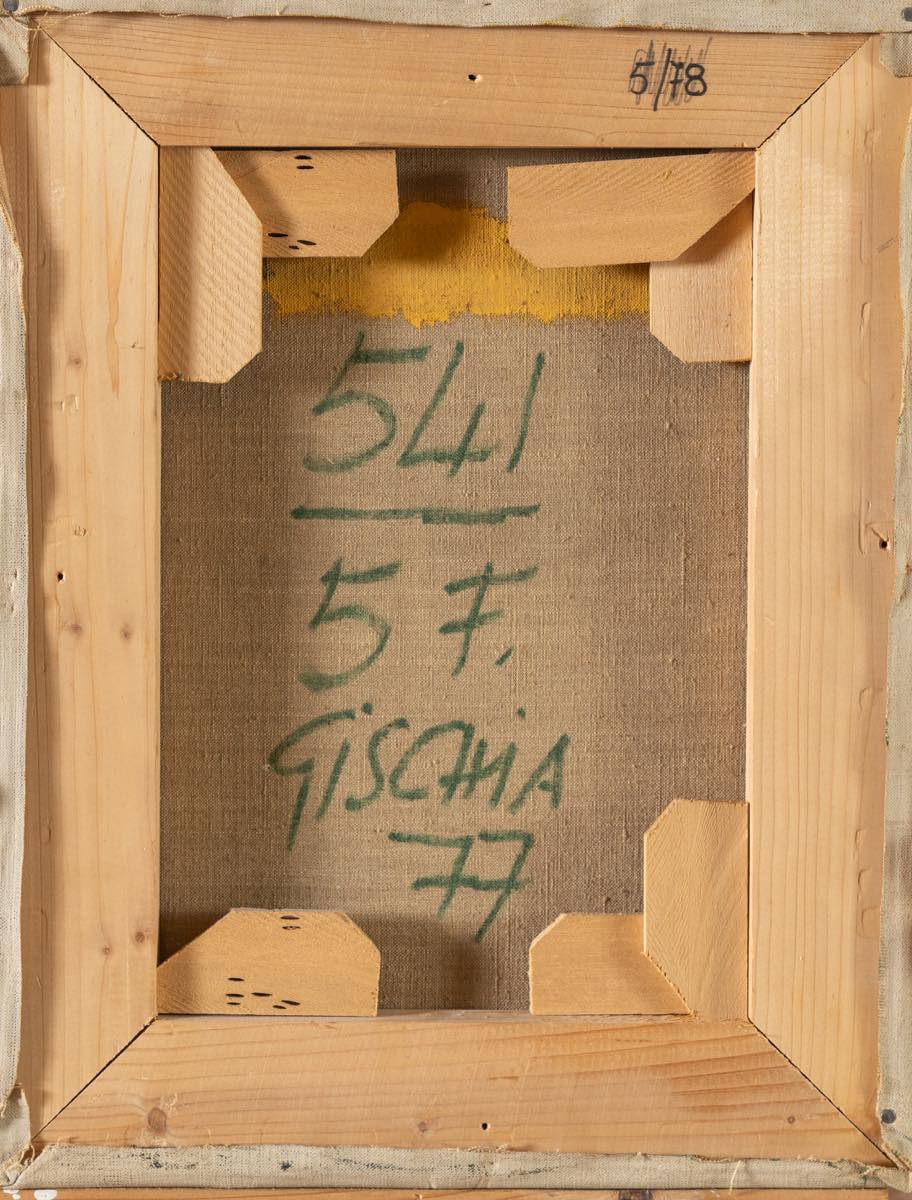 5/78
541
5 F.
GiSCHiA
77